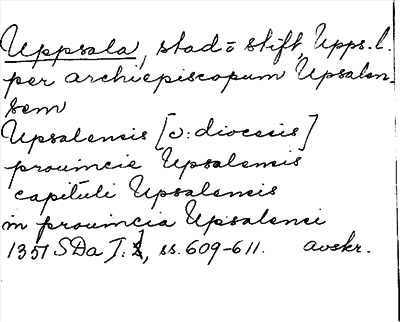 Uppsala, stad o stift, Upps. l.
per archiepiscopum Upsalen-
sem
Upsalensis [ɔ: diocesis]
prouincie Upsalensis
capituli Upsalensis
in prouincia Upsalensi
1351 SDa I:1, ss. 609-611. avskr.